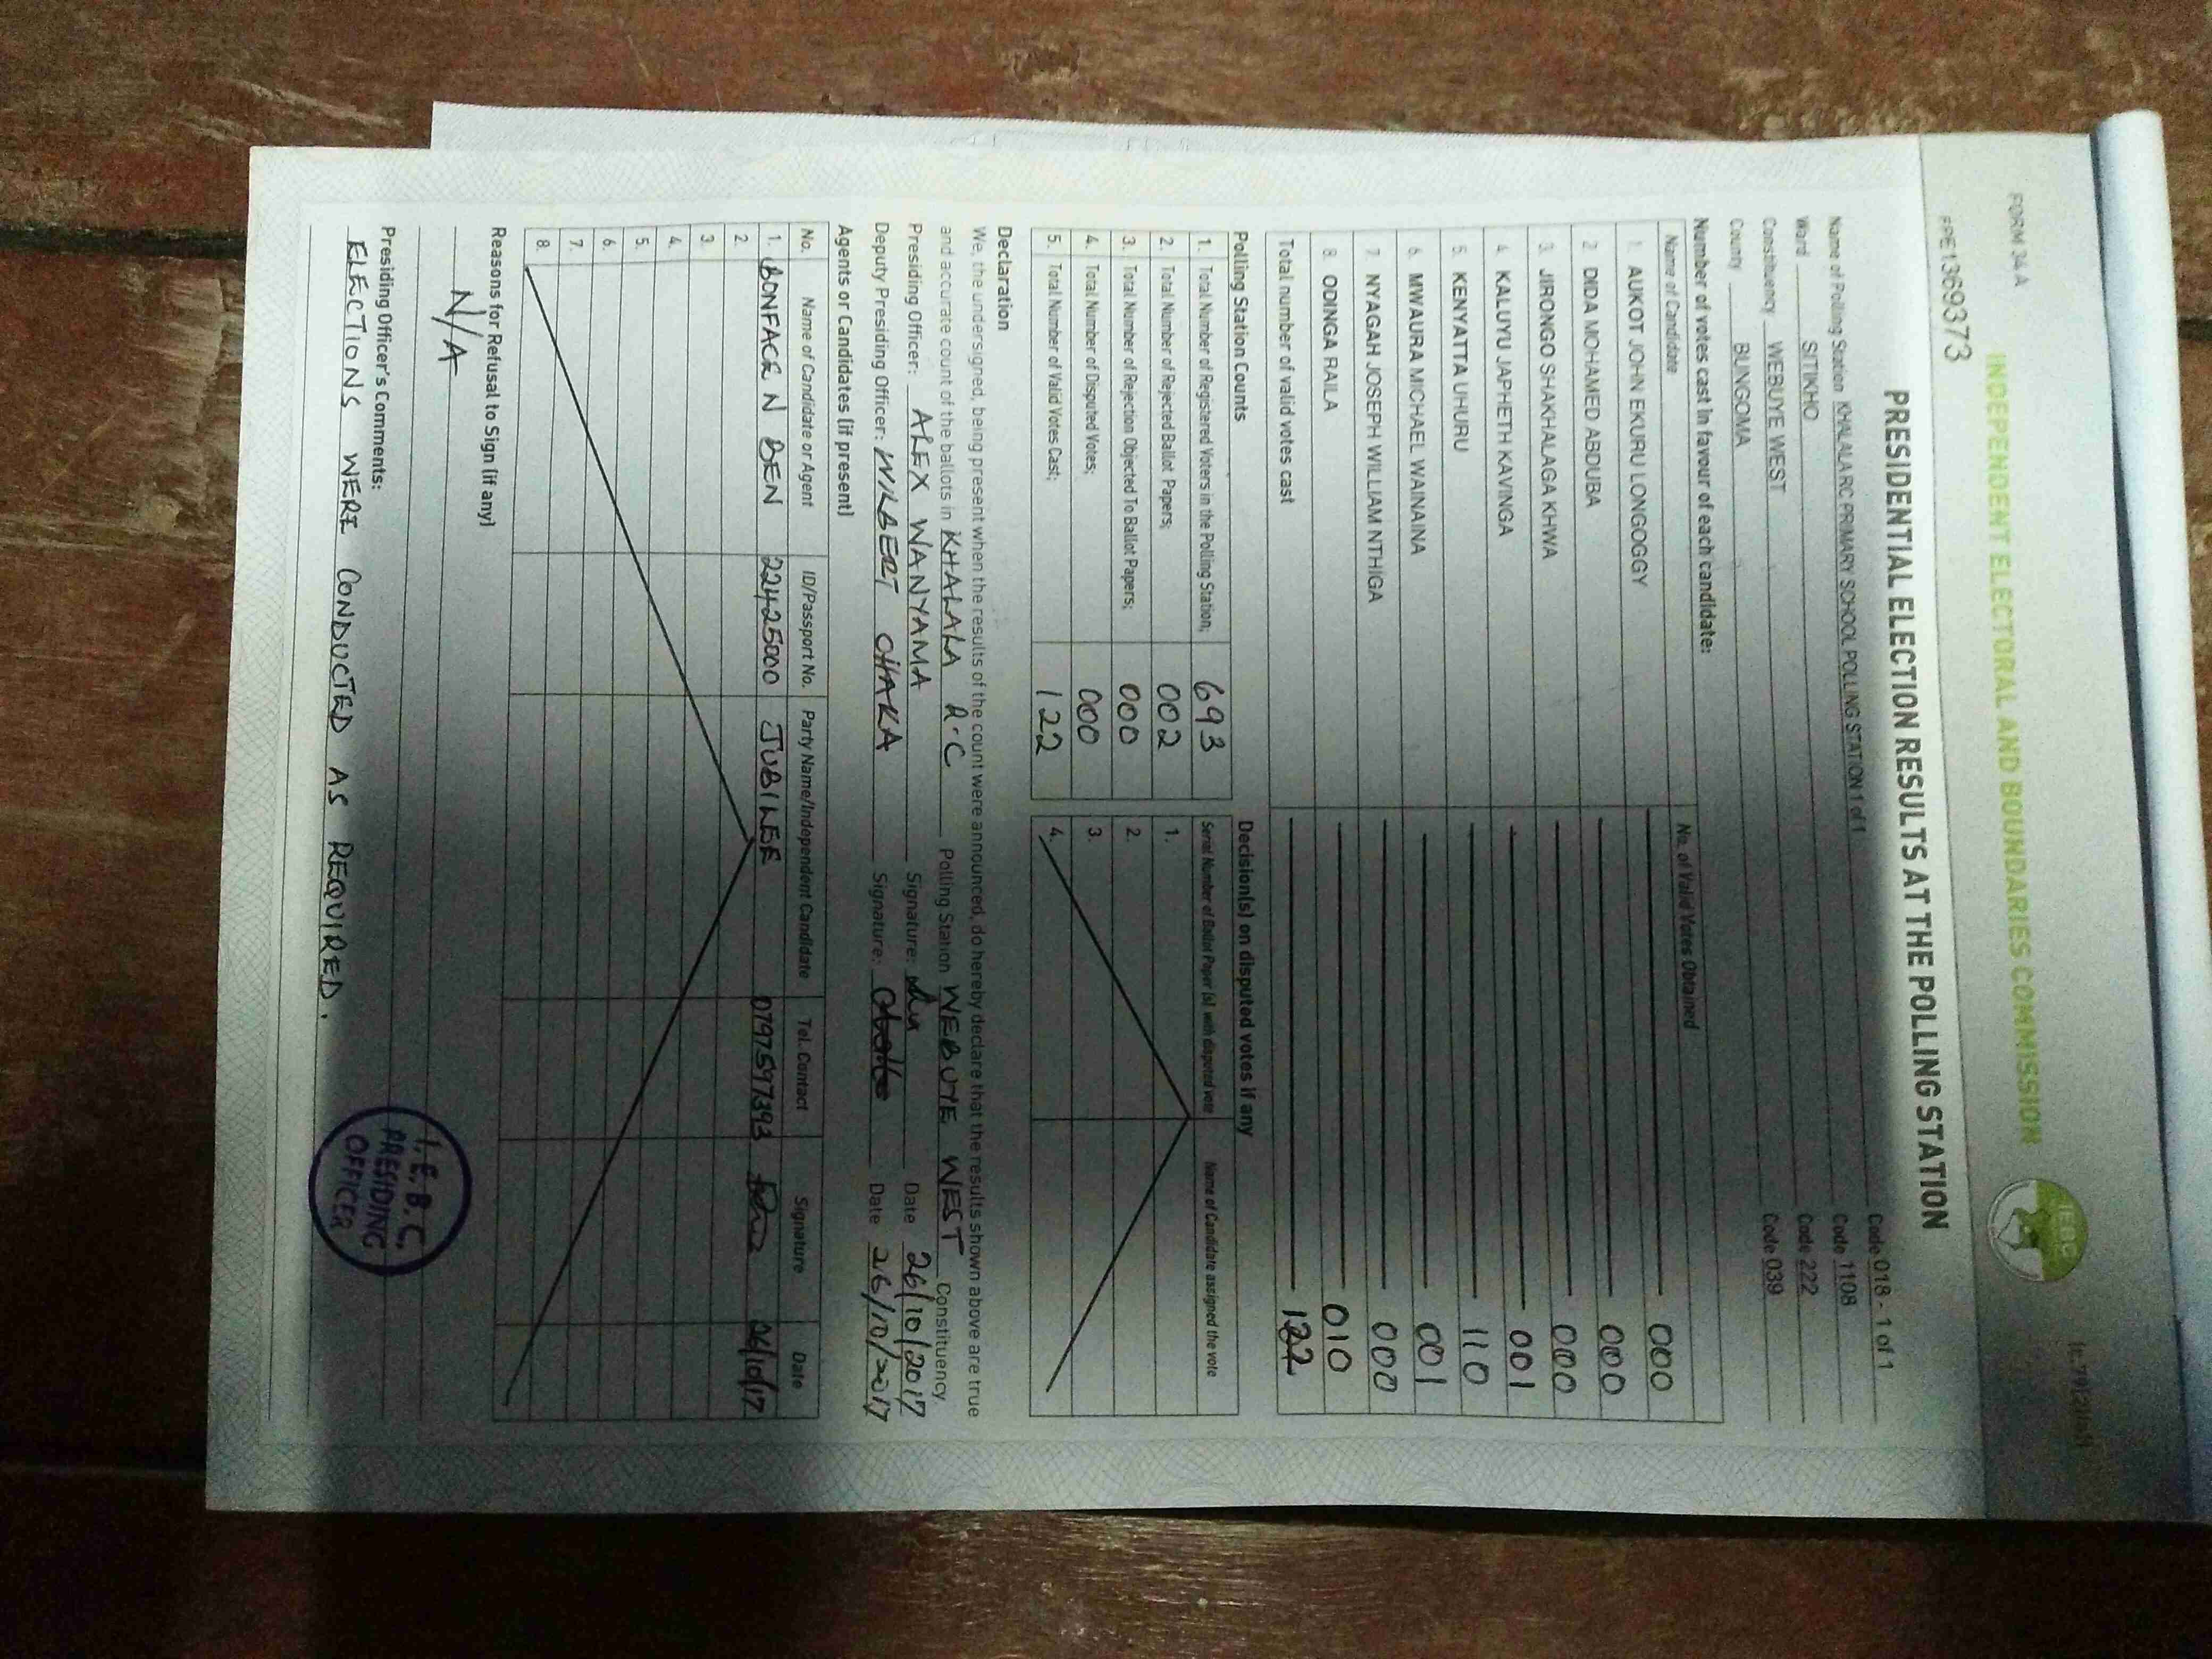 FORM 34 A
INDEPENDENT ELECTORAL AND BOUNDARIES COMMISSION
IEBC
FPE1369373
PRESIDENTIAL ELECTION RESULTS AT THE POLLING STATION
Name of Polling Station KHALALA RC PRIMARY SCHOOL POLLING STATION 1 of 1 Code 018 - 1 of 1
Code 1108
Ward SITIKHO Code 222
Constituency WEBUYE WEST Code 039
County BUNGOMA
Number of votes cast in favour of each candidate:
Name of Candidate No. of Valid Votes Obtained
1. AUKOT JOHN EKURU LONGOGGY 000
2. DIDA MOHAMED ABDUBA 000
3. JIRONGO SHAKHALAGA KHWA 000
4. KALUYU JAPHETH KAVINGA 001
5. KENYATTA UHURU 110
6. MWAURA MICHAEL WAINAINA 001
7. NYAGAH JOSEPH WILLIAM NTHIGA 000
8. ODINGA RAILA 010
Total number of valid votes cast 122
Polling Station Counts
1. Total Number of Registered Voters in the Polling Station; 693
2. Total Number of Rejected Ballot Papers; 002
3. Total Number of Rejection Objected To Ballot Papers; 000
4. Total Number of Disputed Votes; 000
5. Total Number of Valid Votes Cast; 122
Decision(s) on disputed votes if any
Serial Number of Ballot Paper (s) with disputed vote Name of Candidate assigned the vote
1.
2.
3.
4.
Declaration
We, the undersigned, being present when the results of the count were announced, do hereby declare that the results shown above are true
and accurate count of the ballots in KHALALA R.C Polling Station WEBUYE WEST Constituency
Presiding Officer: ALEX WANYAMA Signature: Date 26/10/2017
Deputy Presiding Officer: WILBERT CHAKA Signature: Date 26/10/2017
Agents or Candidates (if present)
No. Name of Candidate or Agent ID/Passport No. Party Name/Independent Candidate Tel. Contact Signature Date
1. BONFACE N BEN 22425000 JUBILEE 0797597393 26/10/17
2.
3.
4.
5.
6.
7.
8.
Reasons for Refusal to Sign (if any)
N/A
Presiding Officer's Comments:
ELECTIONS WERE CONDUCTED AS REQUIRED.
I.E.B.C.
PRESIDING
OFFICER